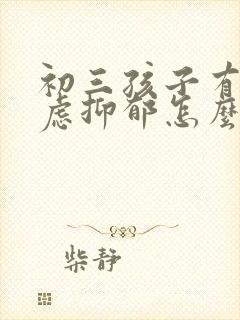 初三孩子有
虑抑郁怎麽
柴静